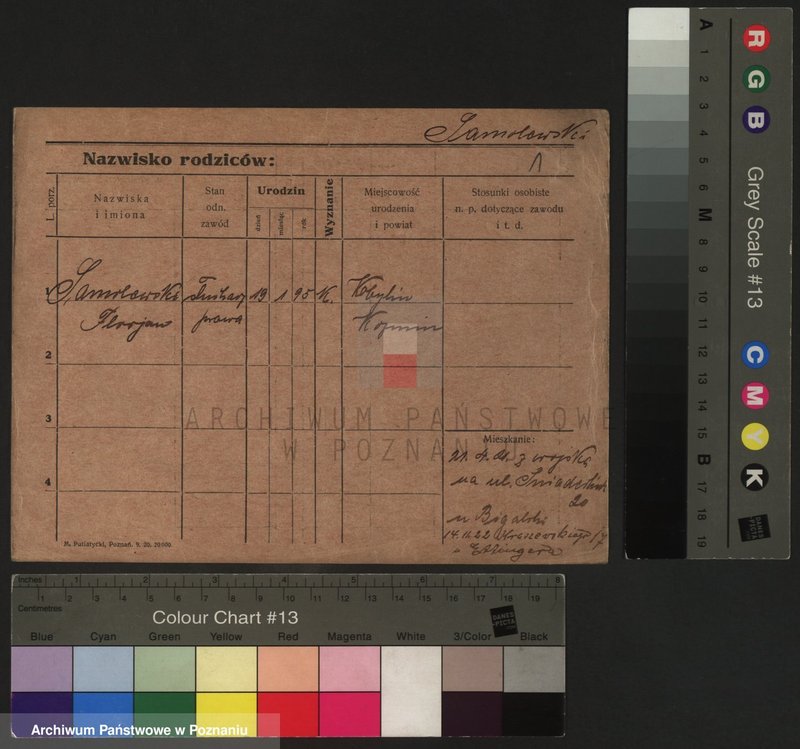 Samolewski
1
Nazwisko rodziców:
L. porz.
Nazwiska
i imiona
Stan
odn.
zawód
Urodzin
dzień
miesiąc
rok
Wyznanie
Miejscowość
urodzenia
i powiat
Stosunki osobiste
n. p. dotyczące zawodu
i t. d.
Samolewski
19 1 95 K.
Kobylin
Florjan
prawa
Koźmin
2
3
4
ARCHIWUM PAŃSTWOWE
W POZNANIU
Mieszkanie:
z wojska
na ul. Śniadeckich
20
u Bigalski
14.11.22 Kraszewskiego 17
u Ettingera
M. Putiatycki, Poznań. 9. 20. 20000.
A 1 2 3 4 5 6 M 8 9 10 11 12 13 14 15 B 17 18 19
R G B
Grey Scale #13
C M Y K
DANES
PICTA
Inches 1 2 3 4 5 6 7 8
Centimetres 1 2 3 4 5 6 7 8 9 10 11 12 13 14 15 16 17 18 19
Colour Chart #13
DANES
PICTA
Blue Cyan Green Yellow Red Magenta White 3/Color Black
Archiwum Państwowe w Poznaniu